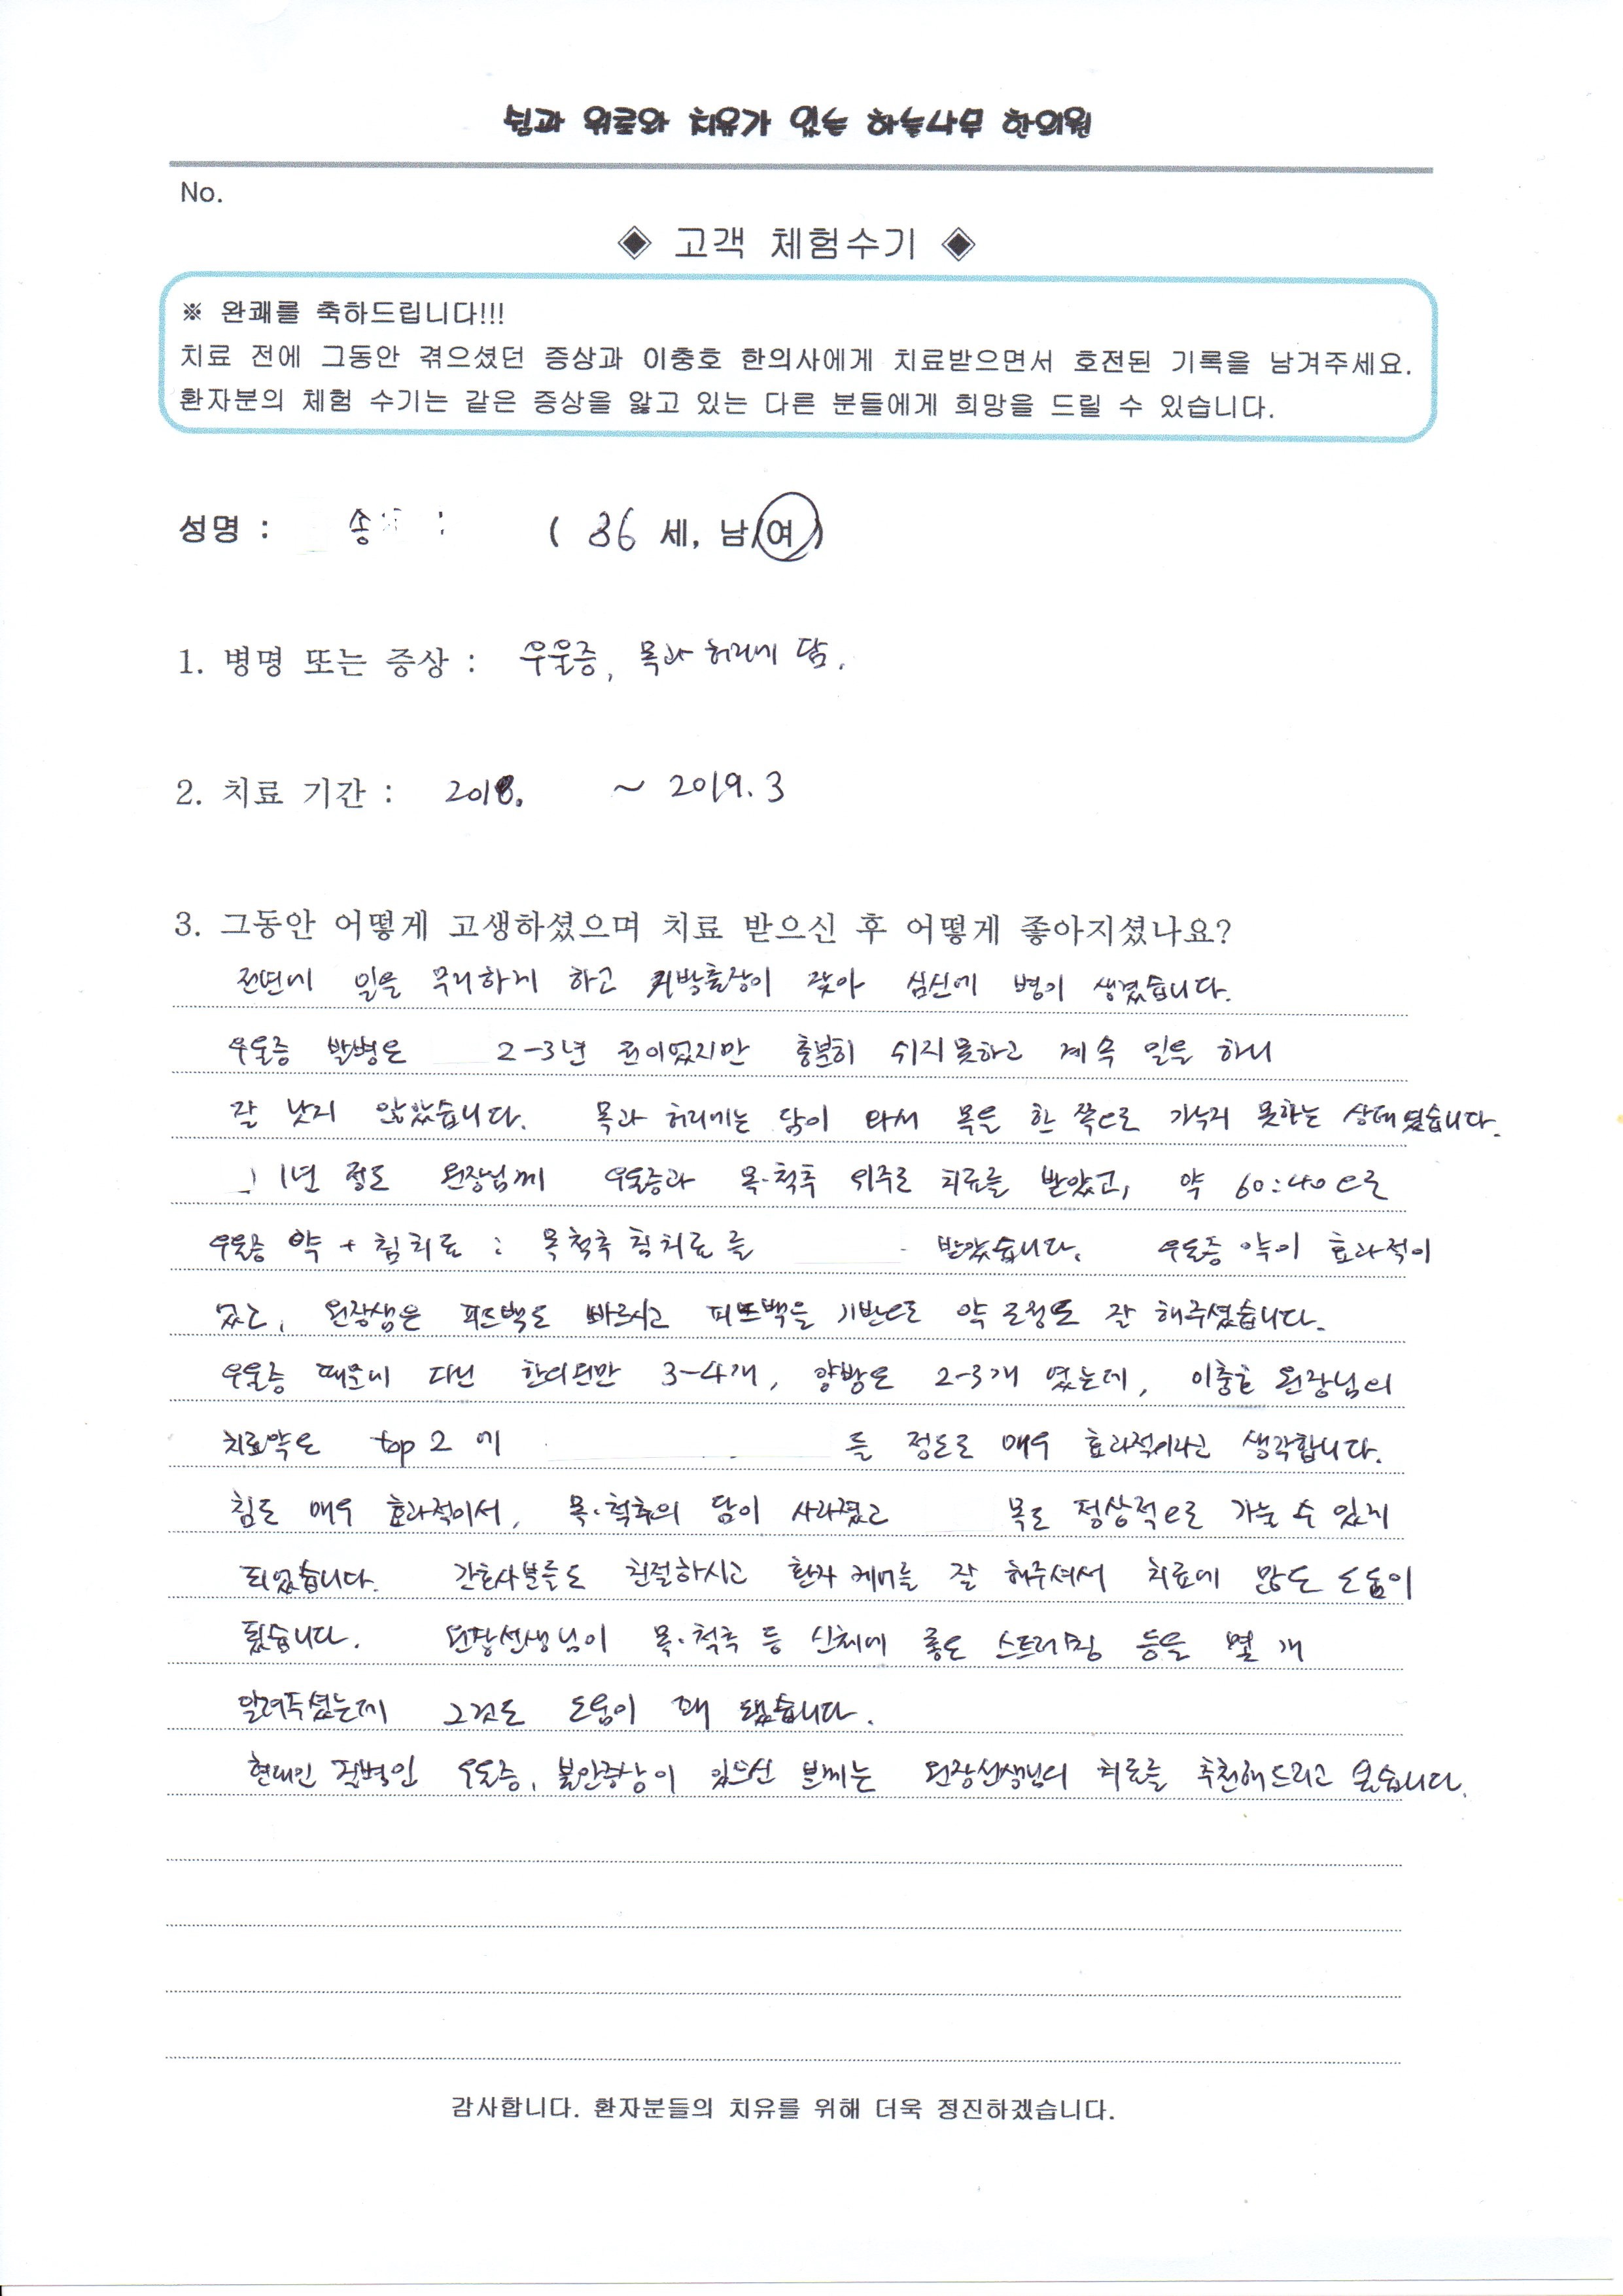 쉼과 위로와 치유가 있는 하늘나무 한의원
No.
◈ 고객 체험수기 ◈
※ 완쾌를 축하드립니다!!!
치료 전에 그동안 겪으셨던 증상과 이충호 한의사에게 치료받으면서 호전된 기록을 남겨주세요.
환자분의 체험 수기는 같은 증상을 앓고 있는 다른 분들에게 희망을 드릴 수 있습니다.
성명 : 송 ( 36 세, 남/여)
1. 병명 또는 증상 : 우울증, 목과 허리에 담.
2. 치료 기간 : 2018. ~ 2019. 3
3. 그동안 어떻게 고생하셨으며 치료 받으신 후 어떻게 좋아지셨나요?
전번에 일을 무리하게 하고 지방출장이 잦아 심신에 병이 생겼습니다.
우울증 발병은 2-3년 전이었지만 충분히 쉬지 못하고 계속 일을 하니
잘 낫지 않았습니다. 목과 허리에는 담이 와서 목을 한 쪽으로 가누지 못하는 상태였습니다.
1년 정도 원장님께 우울증과 목·척추 위주로 치료를 받았고, 약 60:40으로
우울증 약 + 침치료 : 목척추 침치료를 받았습니다. 우울증 약이 효과적이
었고, 원장샘은 피드백도 빠르시고 피드백을 기반으로 약 조정도 잘 해주셨습니다.
우울증 때문에 다닌 한의원만 3-4개, 양방은 2-3개 였는데, 이충호 원장님의
치료약은 top 2 에 들 정도로 매우 효과적이라고 생각합니다.
침도 매우 효과적이어서, 목·척추의 담이 사라졌고 목도 정상적으로 가눌 수 있게
되었습니다. 간호사분들도 친절하시고 환자 케어를 잘 해주셔서 치료에 많은 도움이
됐습니다. 원장선생님이 목·척추 등 신체에 좋은 스트레칭 등을 몇 개
알려주셨는데 그것도 도움이 꽤 됐습니다.
현대인 질병인 우울증, 불안증상이 있으신 분께는 원장선생님의 치료를 추천해드리고 싶습니다.
감사합니다. 환자분들의 치유를 위해 더욱 정진하겠습니다.